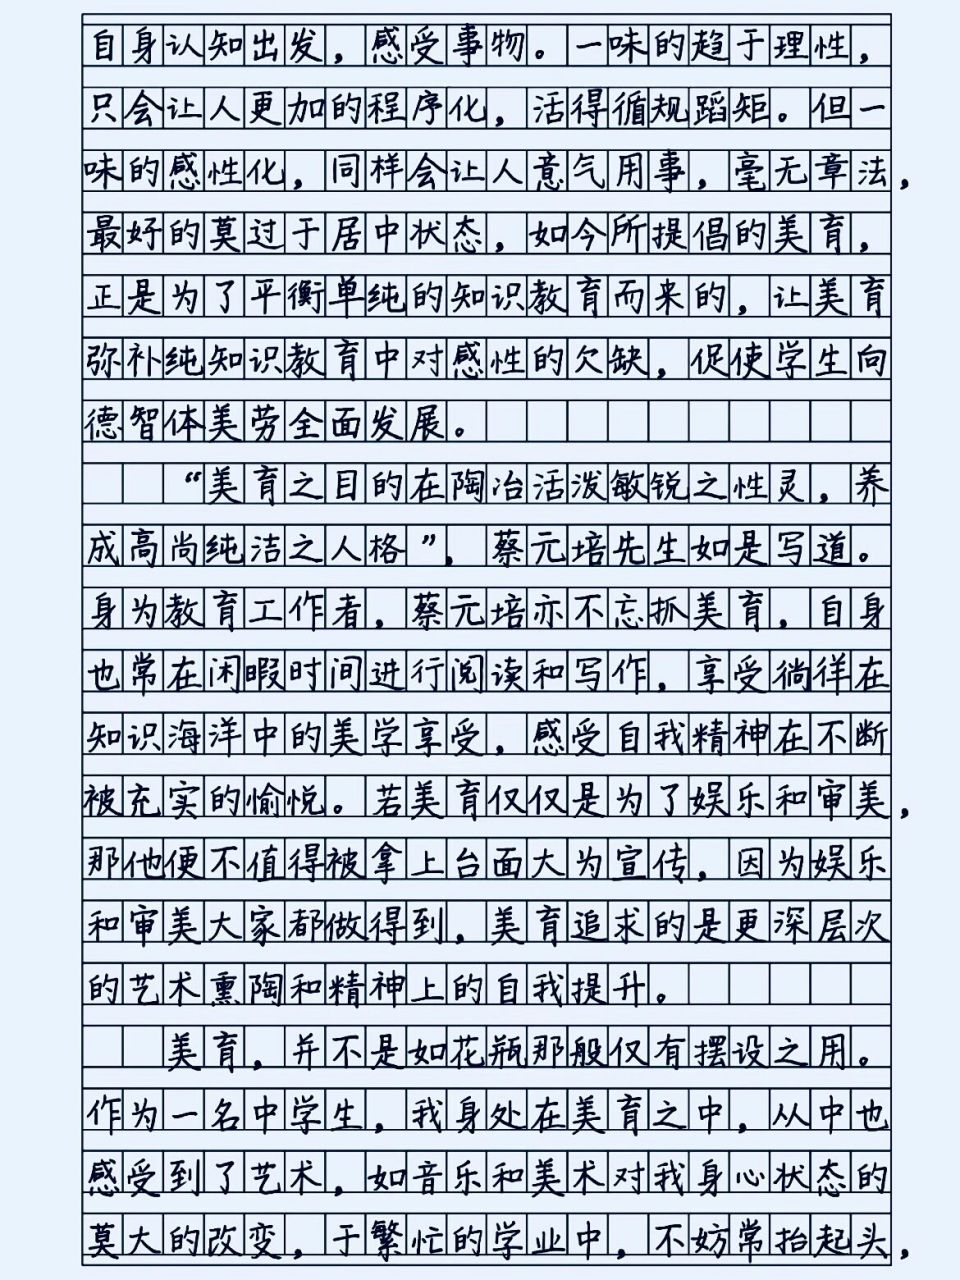 自身认知出发，感受事物。一味的趋于理性，
只会让人更加的程序化，活得循规蹈矩。但一
味的感性化，同样会让人意气用事，毫无章法，
最好的莫过于居中状态，如今所提倡的美育，
正是为了平衡单纯的知识教育而来的，让美育
弥补纯知识教育中对感性的欠缺，促使学生向
德智体美劳全面发展。
“美育之目的在陶冶活泼敏锐之性灵，养
成高尚纯洁之人格”，蔡元培先生如是写道。
身为教育工作者，蔡元培亦不忘抓美育，自身
也常在闲暇时间进行阅读和写作，享受徜徉在
知识海洋中的美学享受，感受自我精神在不断
被充实的愉悦。若美育仅仅是为了娱乐和审美，
那他便不值得被拿上台面大为宣传，因为娱乐
和审美大家都做得到，美育追求的是更深层次
的艺术熏陶和精神上的自我提升。
美育，并不是如花瓶那般仅有摆设之用。
作为一名中学生，我身处在美育之中，从中也
感受到了艺术，如音乐和美术对我身心状态的
莫大的改变，于繁忙的学业中，不妨常抬起头，